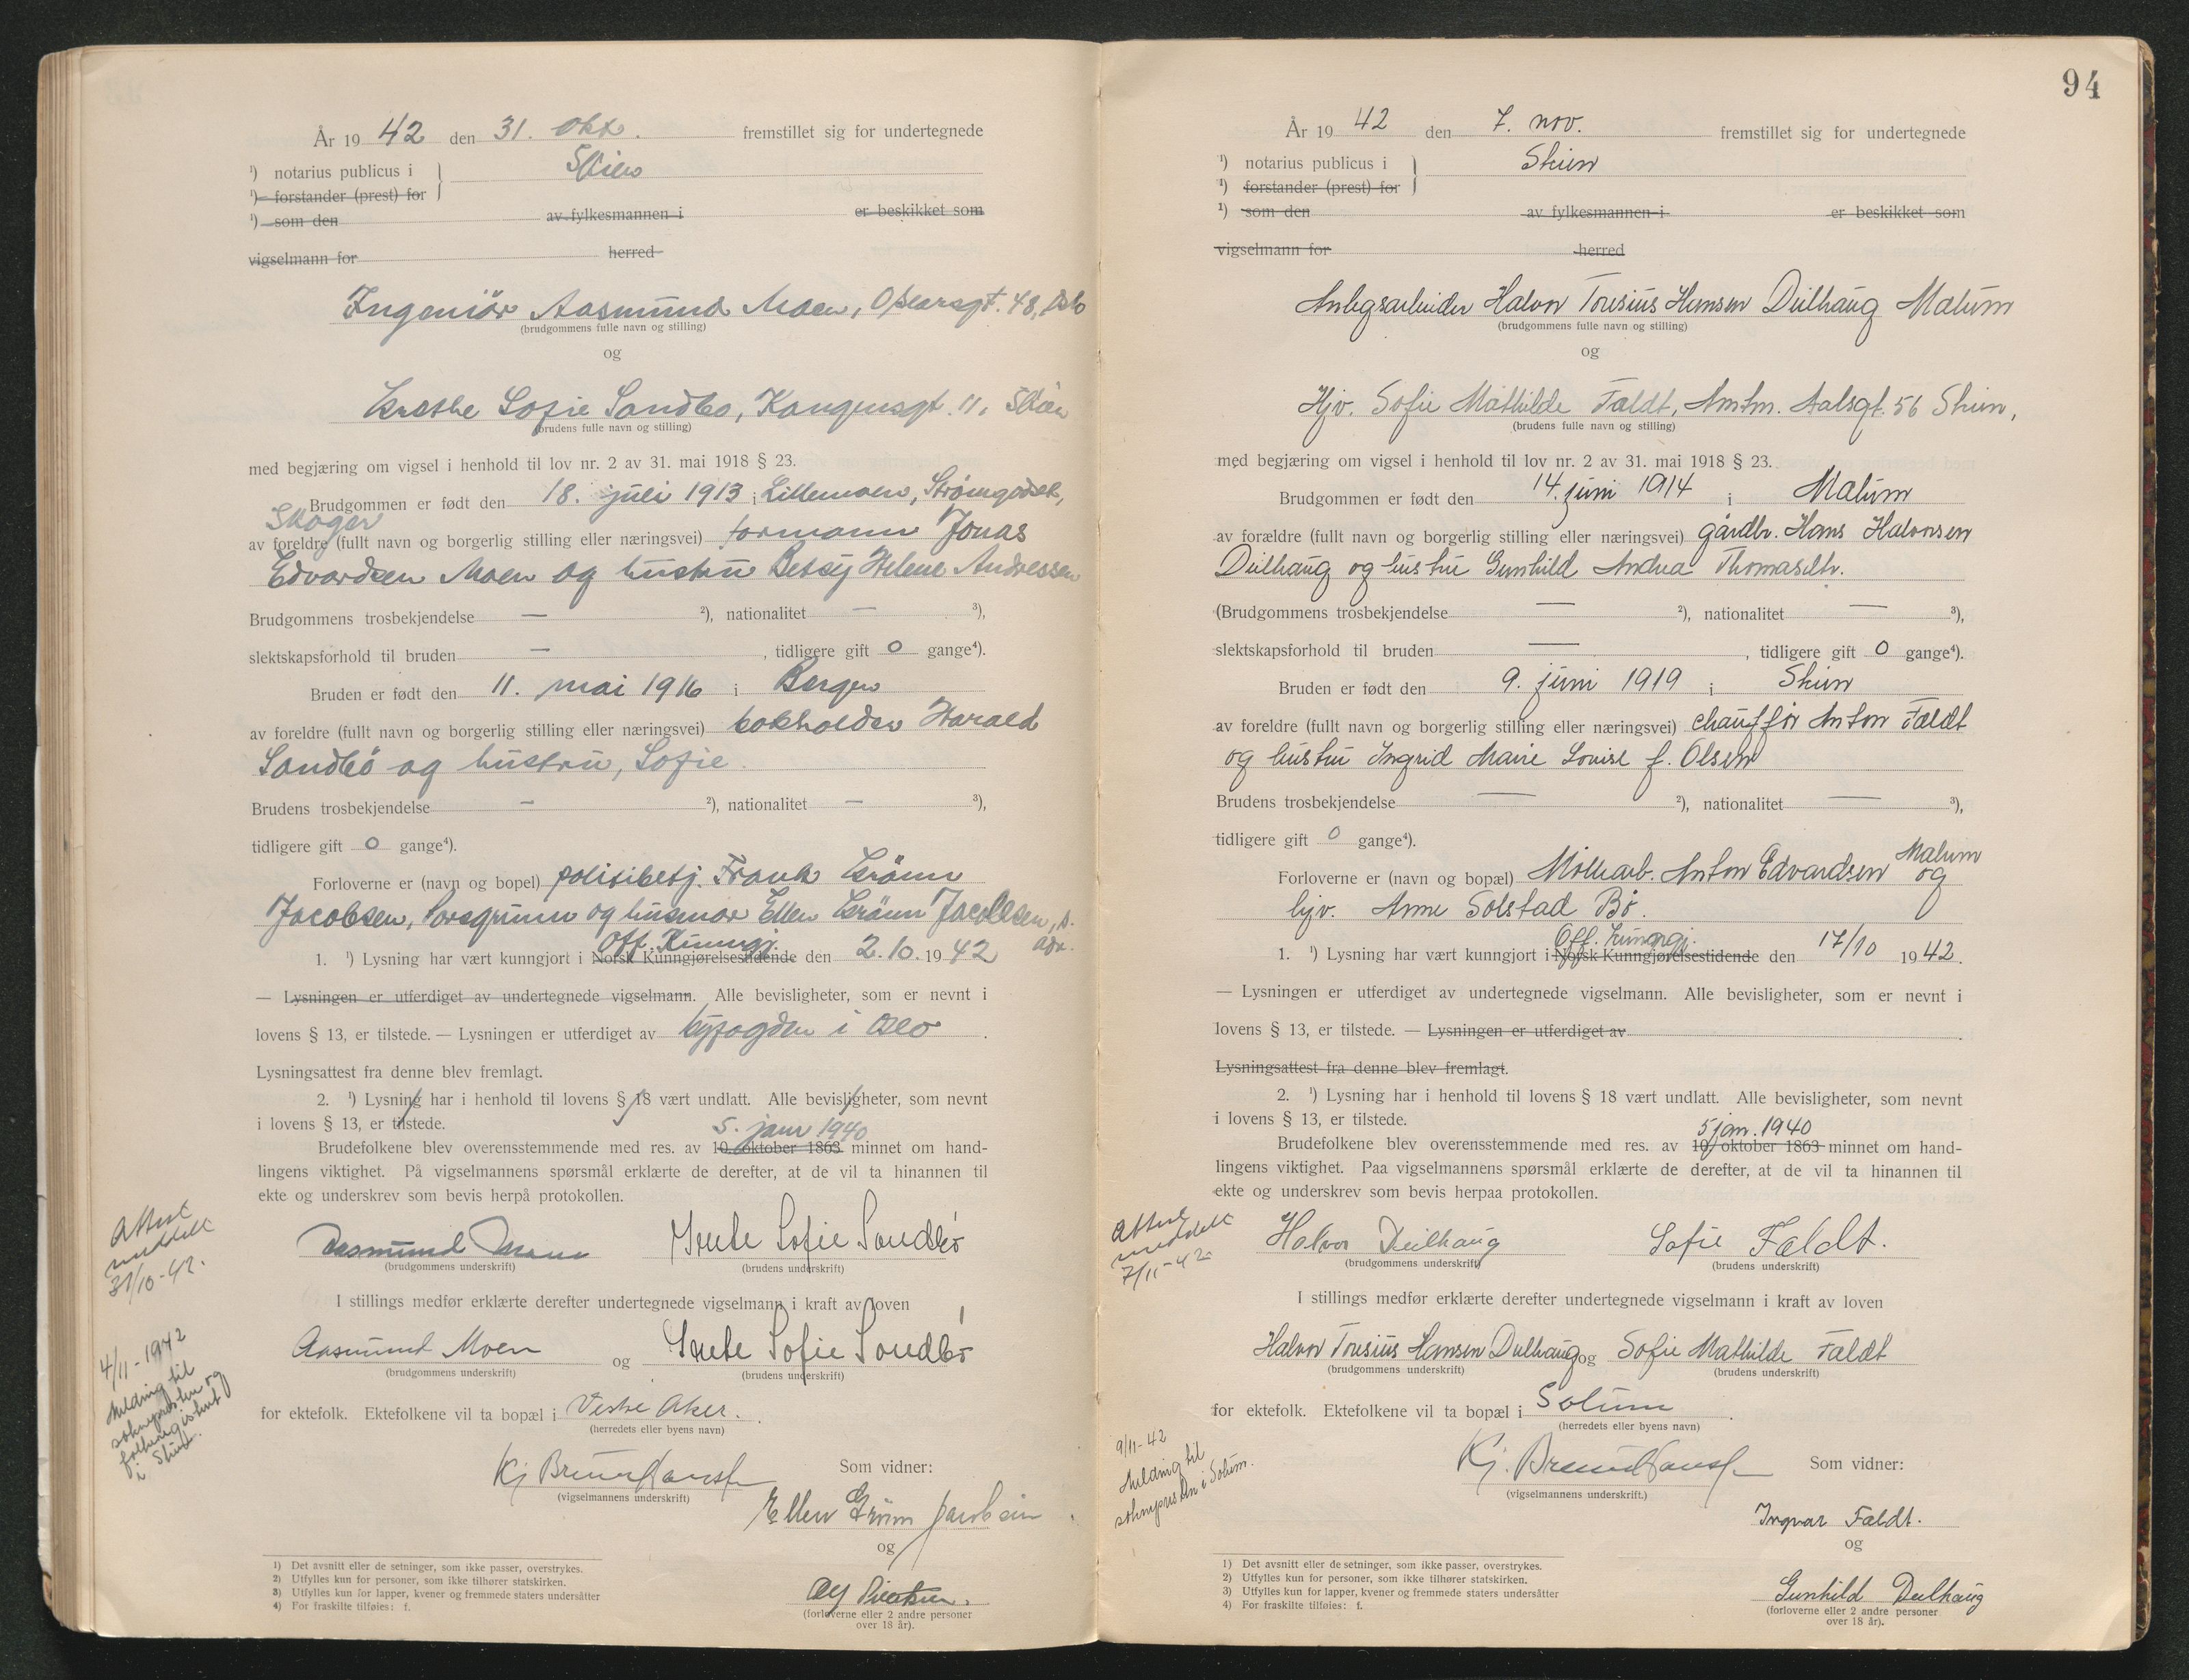 År 19 42 den 31. okt. fremstillet sig for undertegnede
¹) notarius publicus i } Skien
¹) forstander (prest) for
¹) som den av fylkesmannen i er beskikket som
vigselmann for herred
Ingeniör Aasmund Moen, Oscarsgt. 48, Oslo
(brudgommens fulle navn og stilling)
og
Grethe Sofie Sandbo, Kongensgt. 11, Skien
(brudens fulle navn og stilling)
med begjæring om vigsel i henhold til lov nr. 2 av 31. mai 1918 § 23.
Brudgommen er født den 18. juli 1913 i Lillemoen, Strømgodset,
Skoger
av foreldre (fullt navn og borgerlig stilling eller næringsvei) formann Jonas
Edvardsen Moen og hustru Betsy Helene Andressen
Brudgommens trosbekjendelse — ²), nationalitet — ³),
slektskapsforhold til bruden — , tidligere gift 0 gange⁴).
Bruden er født den 11. mai 1916 i Bergen
av foreldre (fullt navn og borgerlig stilling eller næringsvei) bokholder Harald
Sandbö og hustru, Sofie.
Brudens trosbekjendelse — ²), nationalitet — ³),
tidligere gift 0 gange⁴).
Forloverne er (navn og bopel) politibetj. Frank Grönn
Jacobsen, Porsgrunn og husmor Ellen Grönn Jacobsen, s.
adr.
Off. Kunngj.
1. ¹) Lysning har vært kunngjort i Norsk Kunngjørelsestidende den 2. 10. 19 42
— Lysningen er utferdiget av undertegnede vigselmann. Alle bevisligheter, som er nevnt i
lovens § 13, er tilstede. — Lysningen er utferdiget av byfogden i Oslo.
Lysningsattest fra denne blev fremlagt.
2. ¹) Lysning har i henhold til lovens § 18 vært undlatt. Alle bevisligheter, som nevnt
i lovens § 13, er tilstede.
5. janr 1940
Brudefolkene blev overensstemmende med res. av 10. oktober 1863 minnet om hand-
lingens viktighet. På vigselmannens spørsmål erklærte de derefter, at de vil ta hinannen til
ekte og underskrev som bevis herpå protokollen.
Attest
meddelt
31/10-42.
Aasmund Moen Grete Sofie Sandbó
(brudgommens underskrift) (brudens underskrift)
I stillings medfør erklærte derefter undertegnede vigselmann i kraft av loven
Aasmund Moen og Grete Sofie Sandbó
(brudgommens underskrift) (brudens underskrift)
4/11-1942
Melding til
soknepresten og
folkeregisteret
i Skien.
for ektefolk. Ektefolkene vil ta bopæl i Vestre Aker.
(herredets eller byens navn)
Kj Bruun Hansen Som vidner:
(vigselmannens underskrift)
Ellen Grönn Jacobsen
og
Alf
(forloverne eller 2 andre personer
over 18 år).
1) Det avsnitt eller de setninger, som ikke passer, overstrykes.
2) Utfylles kun for personer, som ikke tilhører statskirken.
3) Utfylles kun for lapper, kvener og fremmede staters undersåtter
4) For fraskilte tilføies: f.
94
År 19 42 den 7. nov. fremstillet sig for undertegnede
¹) notarius publicus i } Skien
¹) forstander (prest) for
¹) som den av fylkesmannen i er beskikket som
vigselmann for herred
Anlegsarbeider Halvor Toresius Hansen Dulhaug Mælum
(brudgommens fulle navn og stilling)
og
Hjv. Sofie Mathilde Fældt, Amtm. Aalsgt. 56 Skien,
(brudens fulle navn og stilling)
med begjæring om vigsel i henhold til lov nr. 2 av 31. mai 1918 § 23.
Brudgommen er født den 14. juni 1914 i Mælum
av forældre (fullt navn og borgerlig stilling eller næringsvei) gårdbr. Hans Halvorsen
Dulhaug og hustru Gunhild Andrea Thomasdtr.
(Brudgommens trosbekjendelse — ²), nationalitet — ³),
slektskapsforhold til bruden — , tidligere gift 0 gange⁴).
Bruden er født den 9. juni 1919 i Skien
av foreldre (fullt navn og borgerlig stilling eller næringsvei) chauffør Anton Fældt
og hustru Ingrid Marie Lovise f. Olsen
Brudens trosbekjendelse — ²), nationalitet — ³),
tidligere gift 0 gange⁴).
Forloverne er (navn og bopæl) Möllearb. Anton Edvardsen Mælum og
hjv. Anne Solstad Bö.
Off. kunngj.
1. ¹) Lysning har vært kunngjort i Norsk Kunngjørelsestidende den 17/10 1942.
— Lysningen er utferdiget av undertegnede vigselmann. Alle bevisligheter, som er nevnt i
lovens § 13, er tilstede. — Lysningen er utferdiget av
Lysningsattest fra denne blev fremlagt.
2. ¹) Lysning har i henhold til lovens § 18 vært undlatt. Alle bevisligheter, som nevnt
i lovens § 13, er tilstede.
5 jan. 1940
Brudefolkene blev overensstemmende med res. av 10. oktober 1863 minnet om hand-
lingens viktighet. Paa vigselmannens spørsmål erklærte de derefter, at de vil ta hinannen til
ekte og underskrev som bevis herpaa protokollen.
Attest
meddelt
7/11-42
Halvor Dulhaug Sofie Fældt.
(brudgommens underskrift) (brudens underskrift)
I stillings medfør erklærte derefter undertegnede vigselmann i kraft av loven
Halvor Toresius Hansen Dulhaug og Sofie Mathilde Fældt
(brudgommens underskrift) (brudens underskrift)
for ektefolk. Ektefolkene vil ta bopæl i Solum
(herredets eller byens navn)
9/11-42
Melding til
soknepresten i Solum.
Kj. Bruun Hansen Som vidner:
(vigselmannens underskrift.)
Ingvar Fældt.
og
Gunhild Dulhaug
(forloverne eller 2 andre personer
over 18 år).
1) Det avsnitt eller de setninger, som ikke passer, overstrykes.
2) Utfylles kun for personer, som ikke tilhører statskirken.
3) Utfylles kun for lapper, kvener og fremmede staters undersåtter
4) For fraskilte tilføies: f.